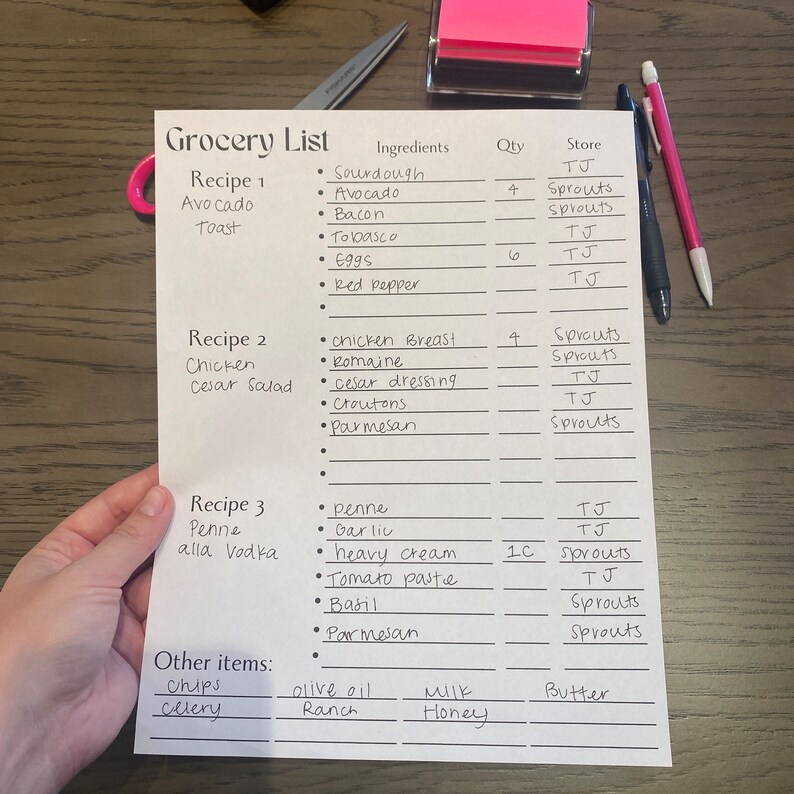 FISKARS
Grocery List Ingredients Qty Store
Recipe 1
Avocado
Toast
• Sourdough TJ
• Avocado 4 Sprouts
• Bacon Sprouts
• Tobasco TJ
• Eggs 6 TJ
• Red pepper TJ
•
Recipe 2
Chicken
Cesar Salad
• Chicken Breast 4 Sprouts
• Romaine Sprouts
• Cesar dressing TJ
• Croutons TJ
• Parmesan Sprouts
•
•
Recipe 3
Penne
alla Vodka
• Penne TJ
• Garlic TJ
• heavy cream 1C Sprouts
• Tomato paste TJ
• Basil Sprouts
• Parmesan Sprouts
•
Other items:
Chips olive oil Milk Butter
Celery Ranch Honey